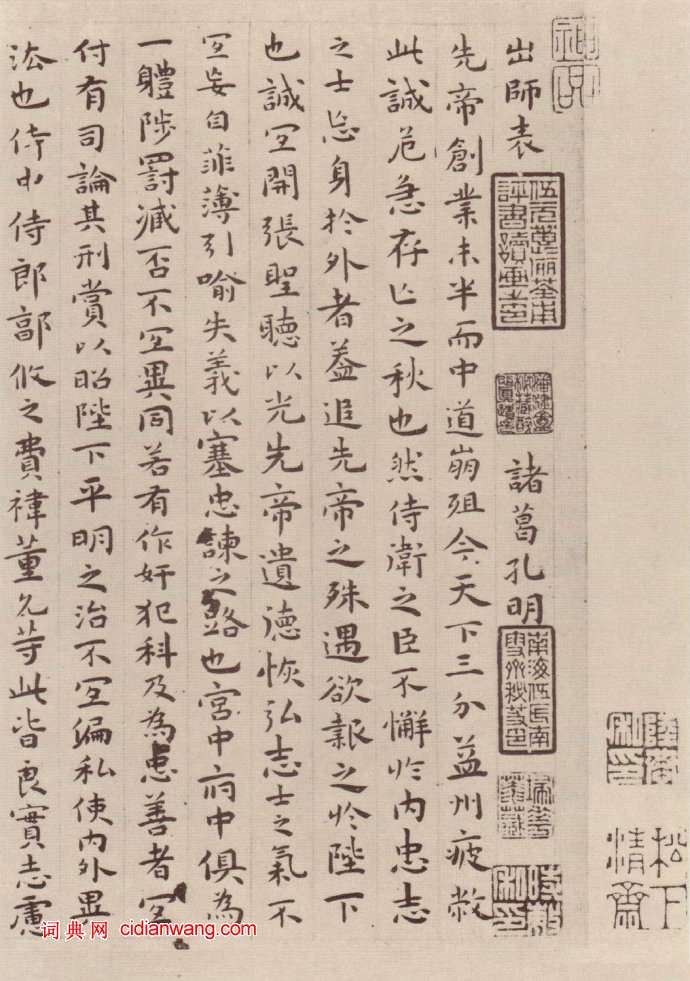 陸恭私印
松下清齋
神品
出師表 諸葛孔明
伍元蕙儷荃甫評書讀畫之印
南海伍氏南雪齋秘笈印
先帝創業未半而中道崩殂今天下三分益州疲敝
此誠危急存亡之秋也然侍衛之臣不懈於内忠志
之士忘身於外者蓋追先帝之殊遇欲報之於陛下
也誠宜開張聖聽以光先帝遺德恢弘志士之氣不
宜妄自菲薄引喻失義以塞忠諫之路也宮中府中俱為
一體陟罰臧否不宜異同若有作奸犯科及為忠善者宜
付有司論其刑賞以昭陛下平明之治不宜偏私使内外異
法也侍中侍郎郭攸之費禕董允等此皆良實志慮
词典网 cidianwang.com